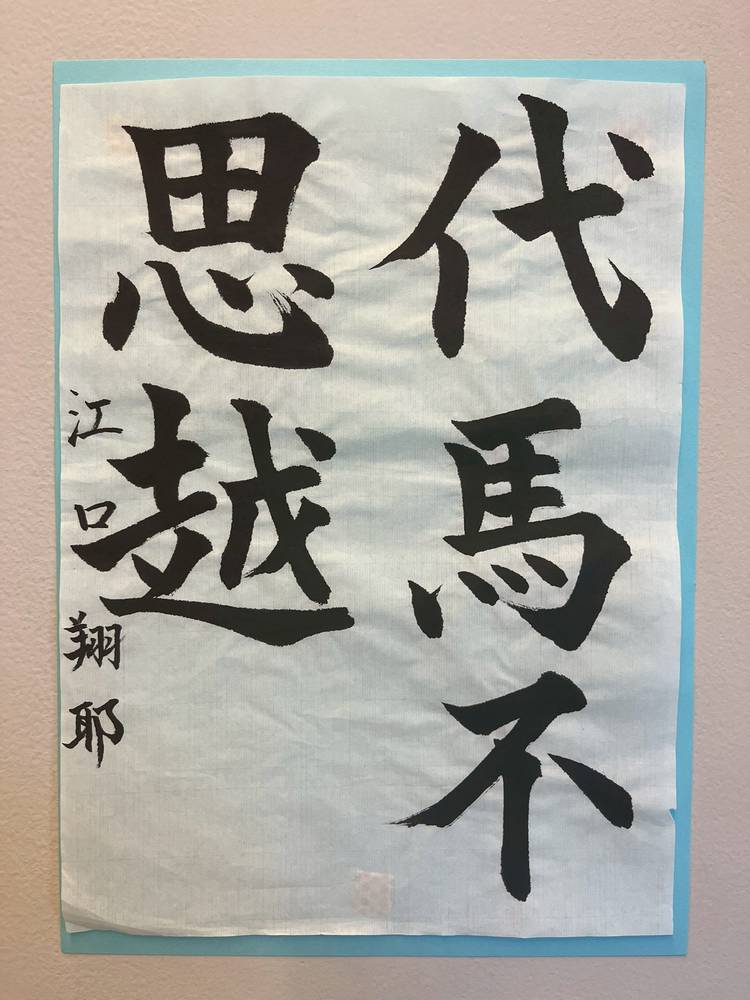 代馬不
思越
江口翔耶